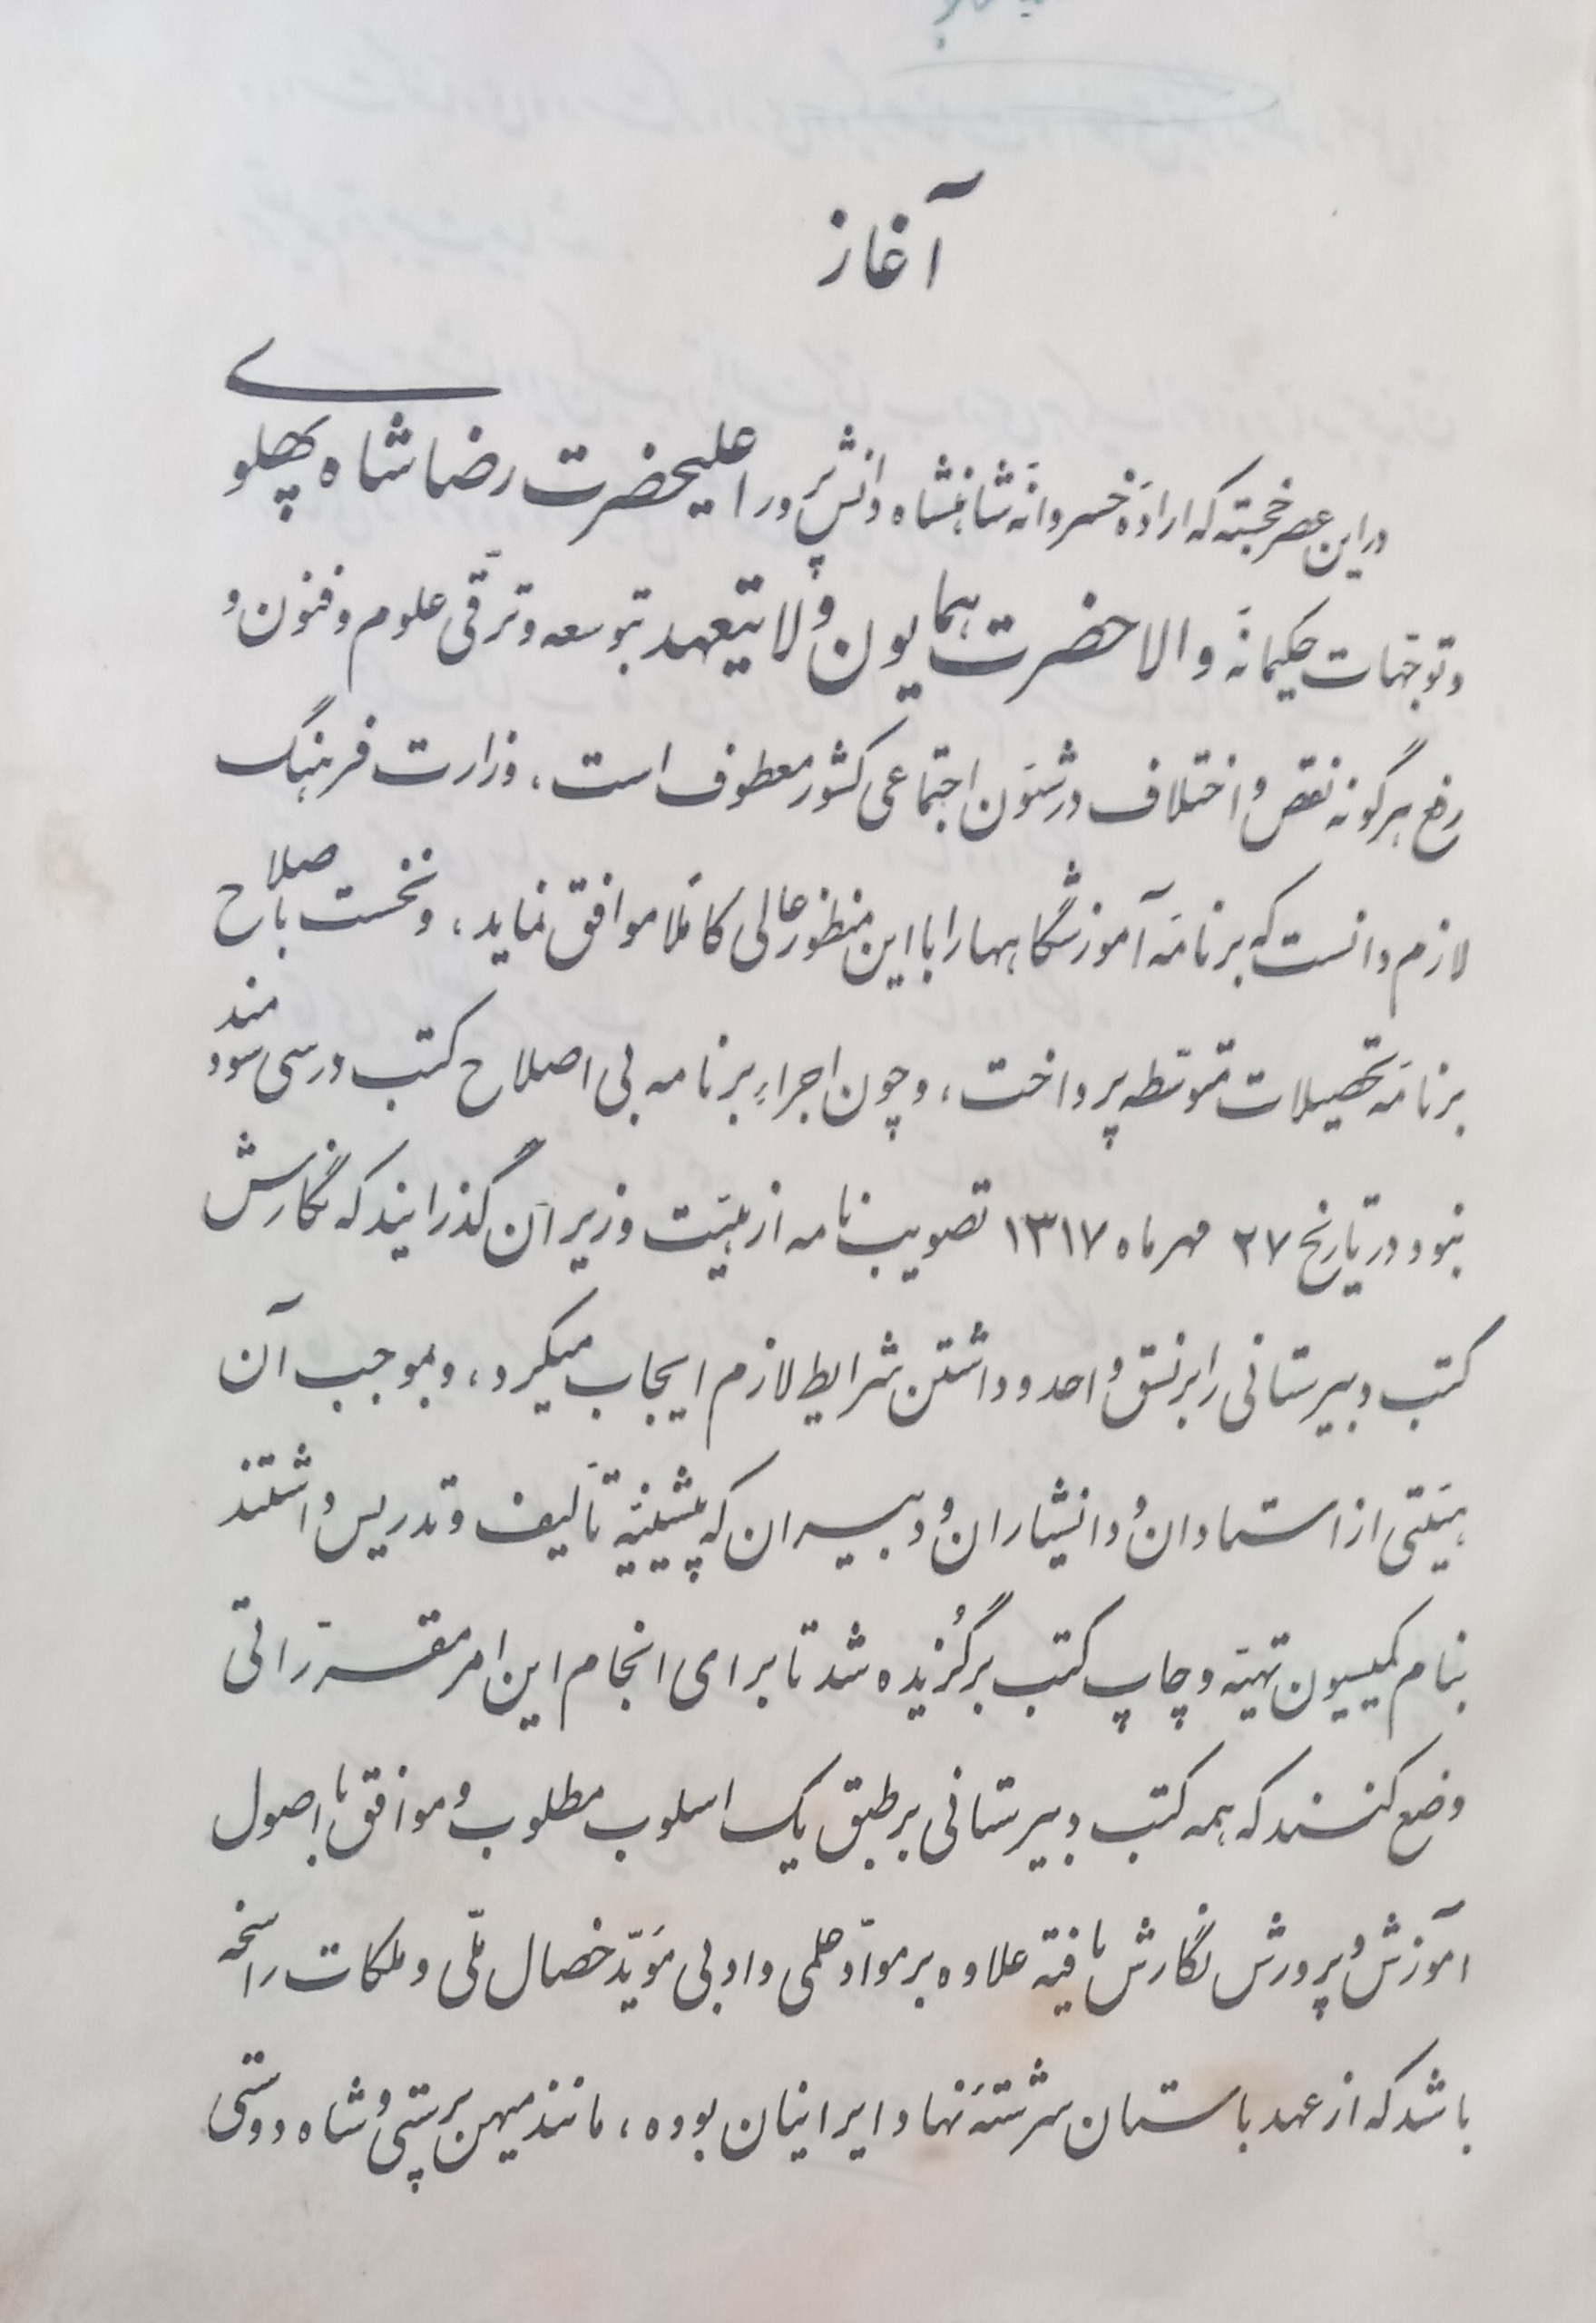 آغاز
در این عصر خجسته که ارادهٔ خسروانهٔ شاهنشاه دانش‌پرور اعلیحضرت رضا شاه پهلوی
و توجّهات حکیمانهٔ والاحضرت همایون ولایتعهد بتوسعه و ترقّی علوم و فنون و
رفع هرگونه نقص و اختلاف در شئون اجتماعی کشور معطوف است، وزارت فرهنگ
لازم دانست که برنامهٔ آموزشگاهها را با این منظور عالی کاملاً موافق نماید، و نخست باصلاح
برنامهٔ تحصیلات متوسّطه پرداخت، و چون اجراء برنامه بی اصلاح کتب درسی سودمند
نبود در تاریخ ۲۷ مهر ماه ۱۳۱۷ تصویب نامه از هیئت وزیران گذرانید که نگارش
کتب دبیرستانی را بر نسق واحد و داشتن شرایط لازم ایجاب میکرد، و بموجب آن
هیئتی از استادان و دانشیاران و دبیران که پیشینهٔ تألیف و تدریس داشتند
بنام کمیسیون تهیّه و چاپ کتب برگُزیده شد تا برای انجام این امر مقرّراتی
وضع کنند که همه کتب دبیرستانی بر طبق یک اسلوب مطلوب و موافق با اصول
آموزش و پرورش نگارش یافته علاوه بر موادّ علمی و ادبی مؤیّد خصال ملّی و ملکات راسخه
باشد که از عهد باستان سرشتهٔ نهاد ایرانیان بوده، مانند میهن پرستی و شاه دوستی